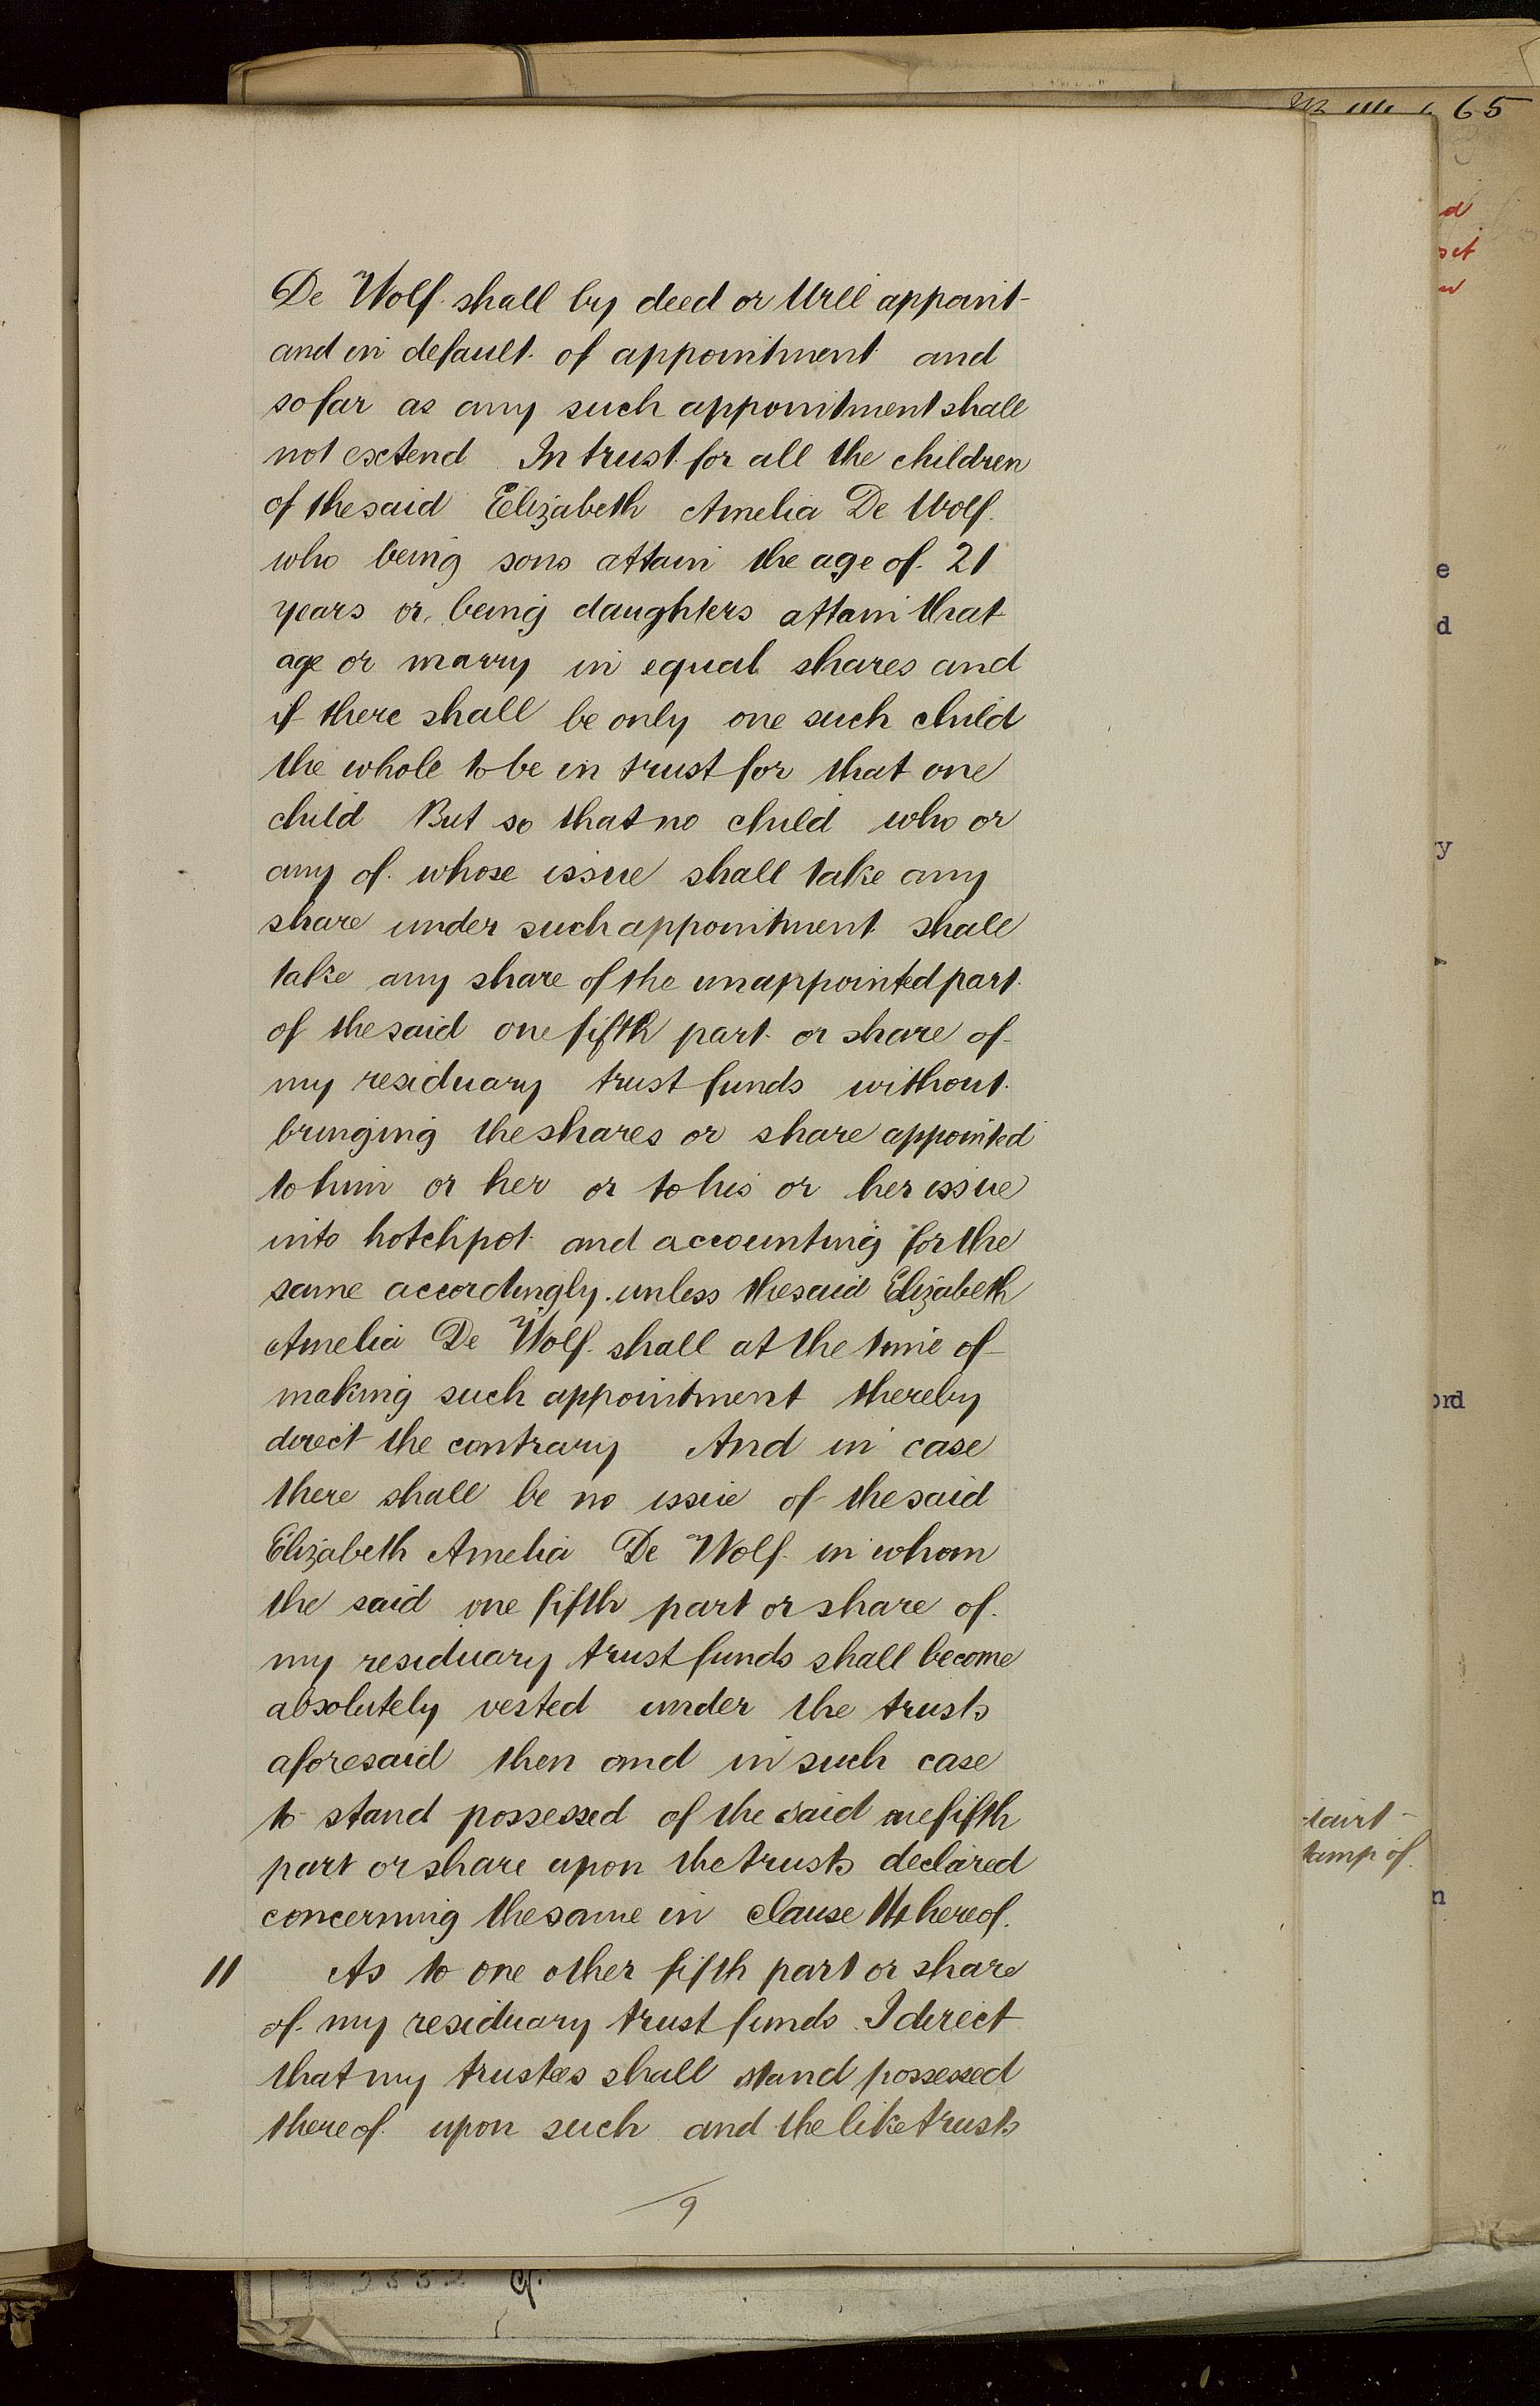 65
d
set
De Wolf shall by deed or Will appoint
and in default of appointment and
so far as any such appointment shall
not extend In trust for all the children
of the said Elizabeth Amelia De Wolf
who being sons attain the age of 21
years or being daughters attain that
age or marry in equal shares and
if there shall be only one such child
the whole to be in trust for that one
child But so that no child who or
any of whose issue shall take any
share under such appointment shall
take any share of the unappointed part
of the said one fifth part or share of
my residuary trust funds without
bringing the shares or share appointed
to him or her or to his or her issue
into hotchpot and accounting for the
same accordingly unless the said Elizabeth
Amelia De Wolf shall at the time of
making such appointment thereby
direct the contrary And in case
there shall be no issue of the said
Elizabeth Amelia De Wolf in whom
the said one fifth part or share of
my residuary trust funds shall become
absolutely vested under the trusts
aforesaid then and in such case
to stand possessed of the said one fifth
part or share upon the trusts declared
concerning the same in clause 14 hereof.
11 As to one other fifth part or share
of my residuary trust funds I direct
that my trustees shall stand possessed
thereof upon such and the like trusts
9
e
d
y
ord
n